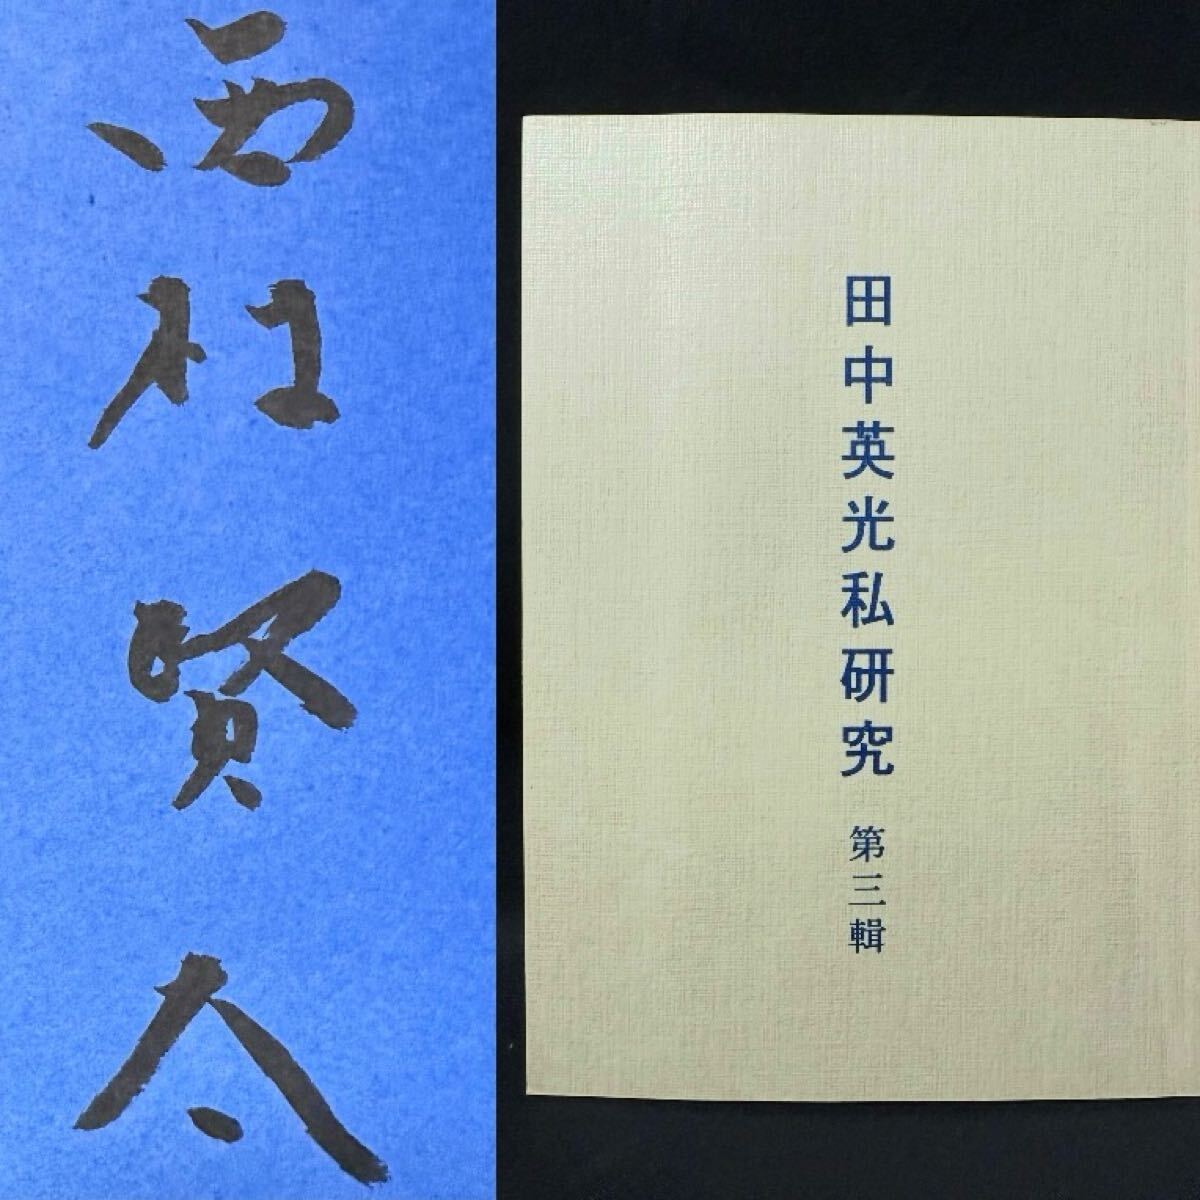 西村賢太
田中英光私研究 第三輯